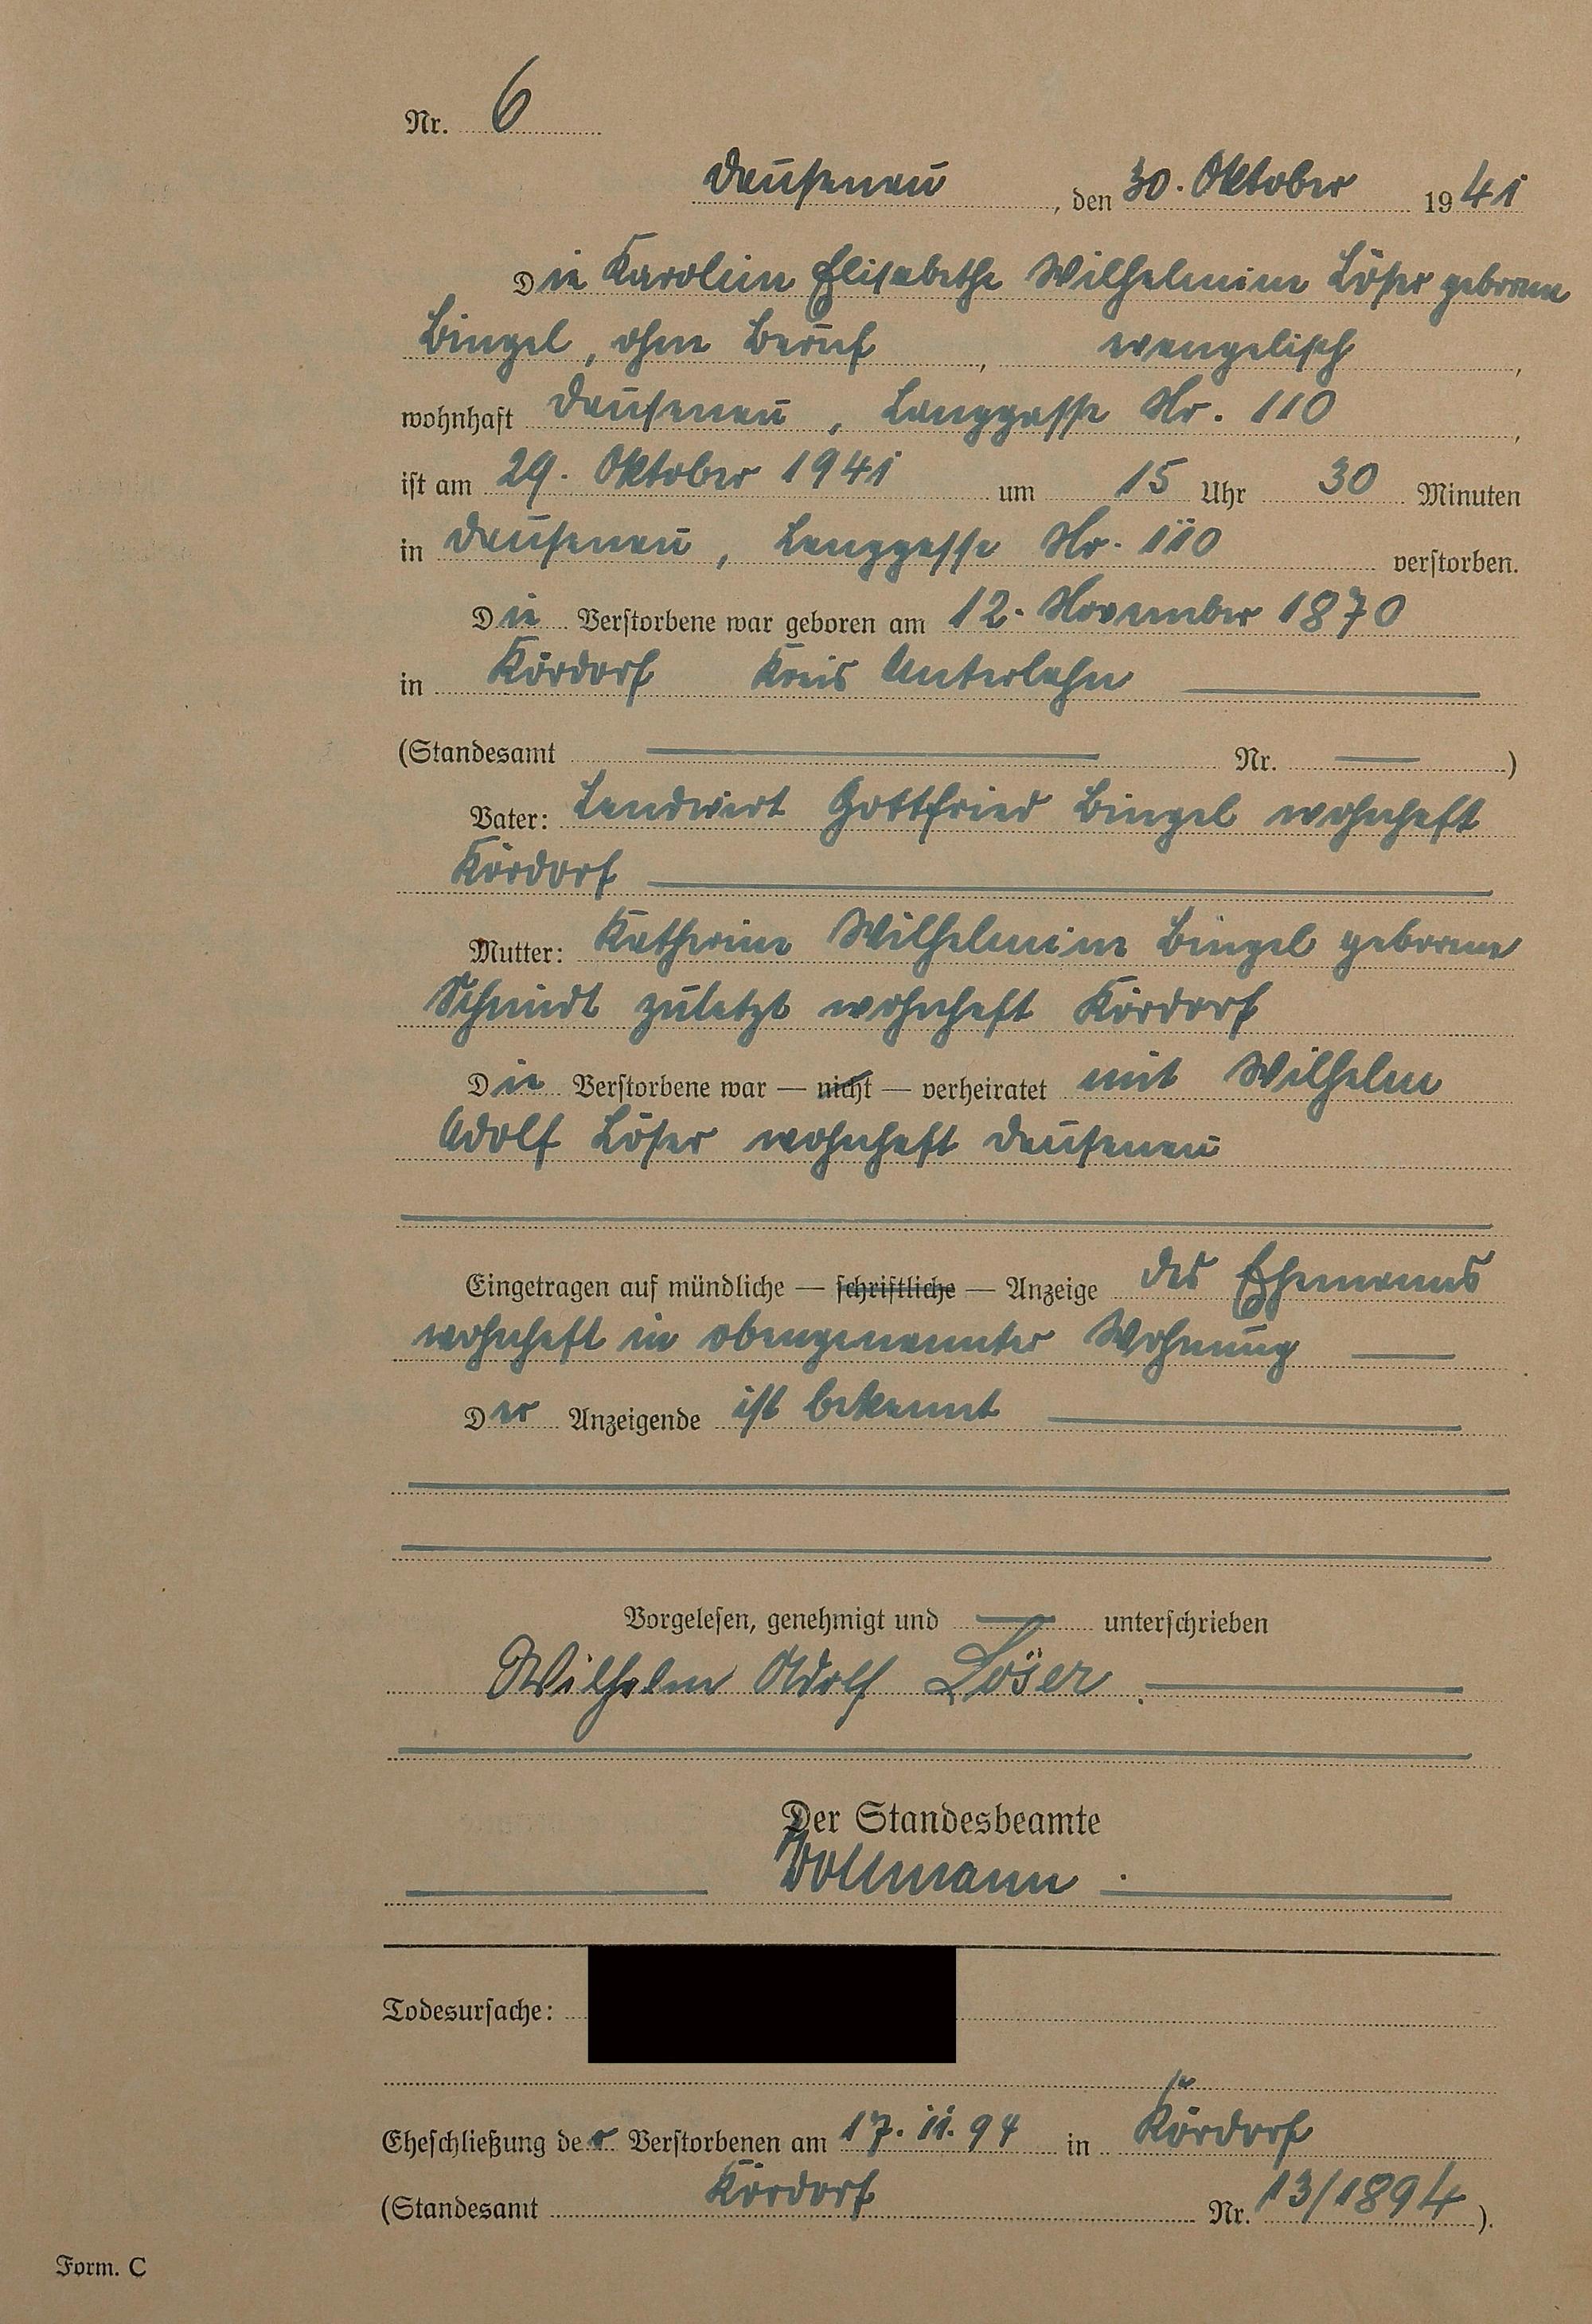 Nr. 6
Dausenau, den 30. Oktober 1941
Die Karoline Elisabethe Wilhelmine Löser geborene
Bingel, ohne Beruf, evangelisch,
wohnhaft Dausenau, Langgasse Nr. 110,
ist am 29. Oktober 1941 um 15 Uhr 30 Minuten
in Dausenau, Langgasse Nr. 110 verstorben.
Die Verstorbene war geboren am 12. November 1870
in Kördorf Kreis Unterlahn
(Standesamt Nr. )
Vater: Landwirt Gottfried Bingel wohnhaft
Kördorf
Mutter: Katharine Wilhelmine Bingel geborene
Schmidt zuletzt wohnhaft Kördorf
Die Verstorbene war — nicht — verheiratet mit Wilhelm
Adolf Löser wohnhaft Dausenau
Eingetragen auf mündliche — schriftliche — Anzeige des Ehemanns
wohnhaft in obengenannter Wohnung
Der Anzeigende ist bekannt
Vorgelesen, genehmigt und unterschrieben
Wilhelm Adolf Löser.
Der Standesbeamte
Wollmann.
Todesursache:
Eheschließung der Verstorbenen am 17.11.94 in Kördorf
(Standesamt Kördorf Nr. 13/1894).
Form. C